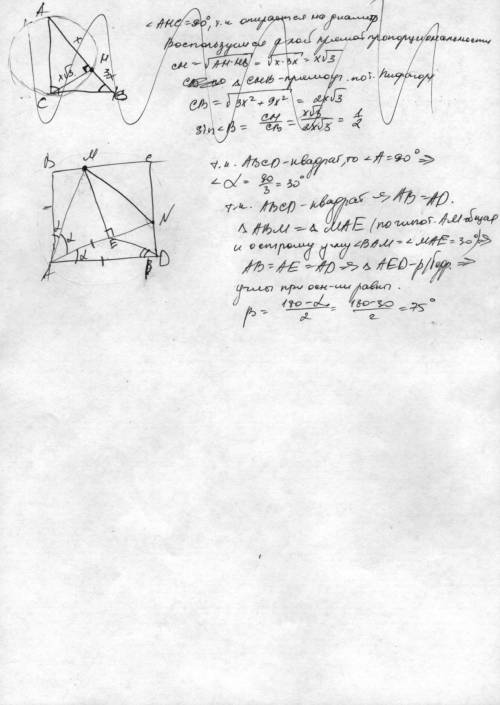 ∠AHC=90°, т.к. опирается на диаметр
Воспользуемся прямой пропорциональности
CH=√AH·HB = √x·3x = x√3
по △CHB-прямоуг. по т. Пифагора
CB=√3x²+9x² = 2x√3
sin∠B = CH/CB = x√3/2x√3 = 1/2
A
x
H
x√3
3x
C
B
т.к. ABCD-квадрат, то ∠A=90° ⇒
∠α = 90/3 = 30°
т.к. ABCD-квадрат ⇒ AB=AD.
△ABM = △MAE (по гипот. AM-общая
и острому углу ∠BAM=∠MAE=30°) ⇒
AB=AE=AD ⇒ △AED-р/бедр. ⇒
углы при осн-ии равны.
β = 180-α/2 = 180-30/2 = 75°
B
M
C
N
E
α
α
A
β
D